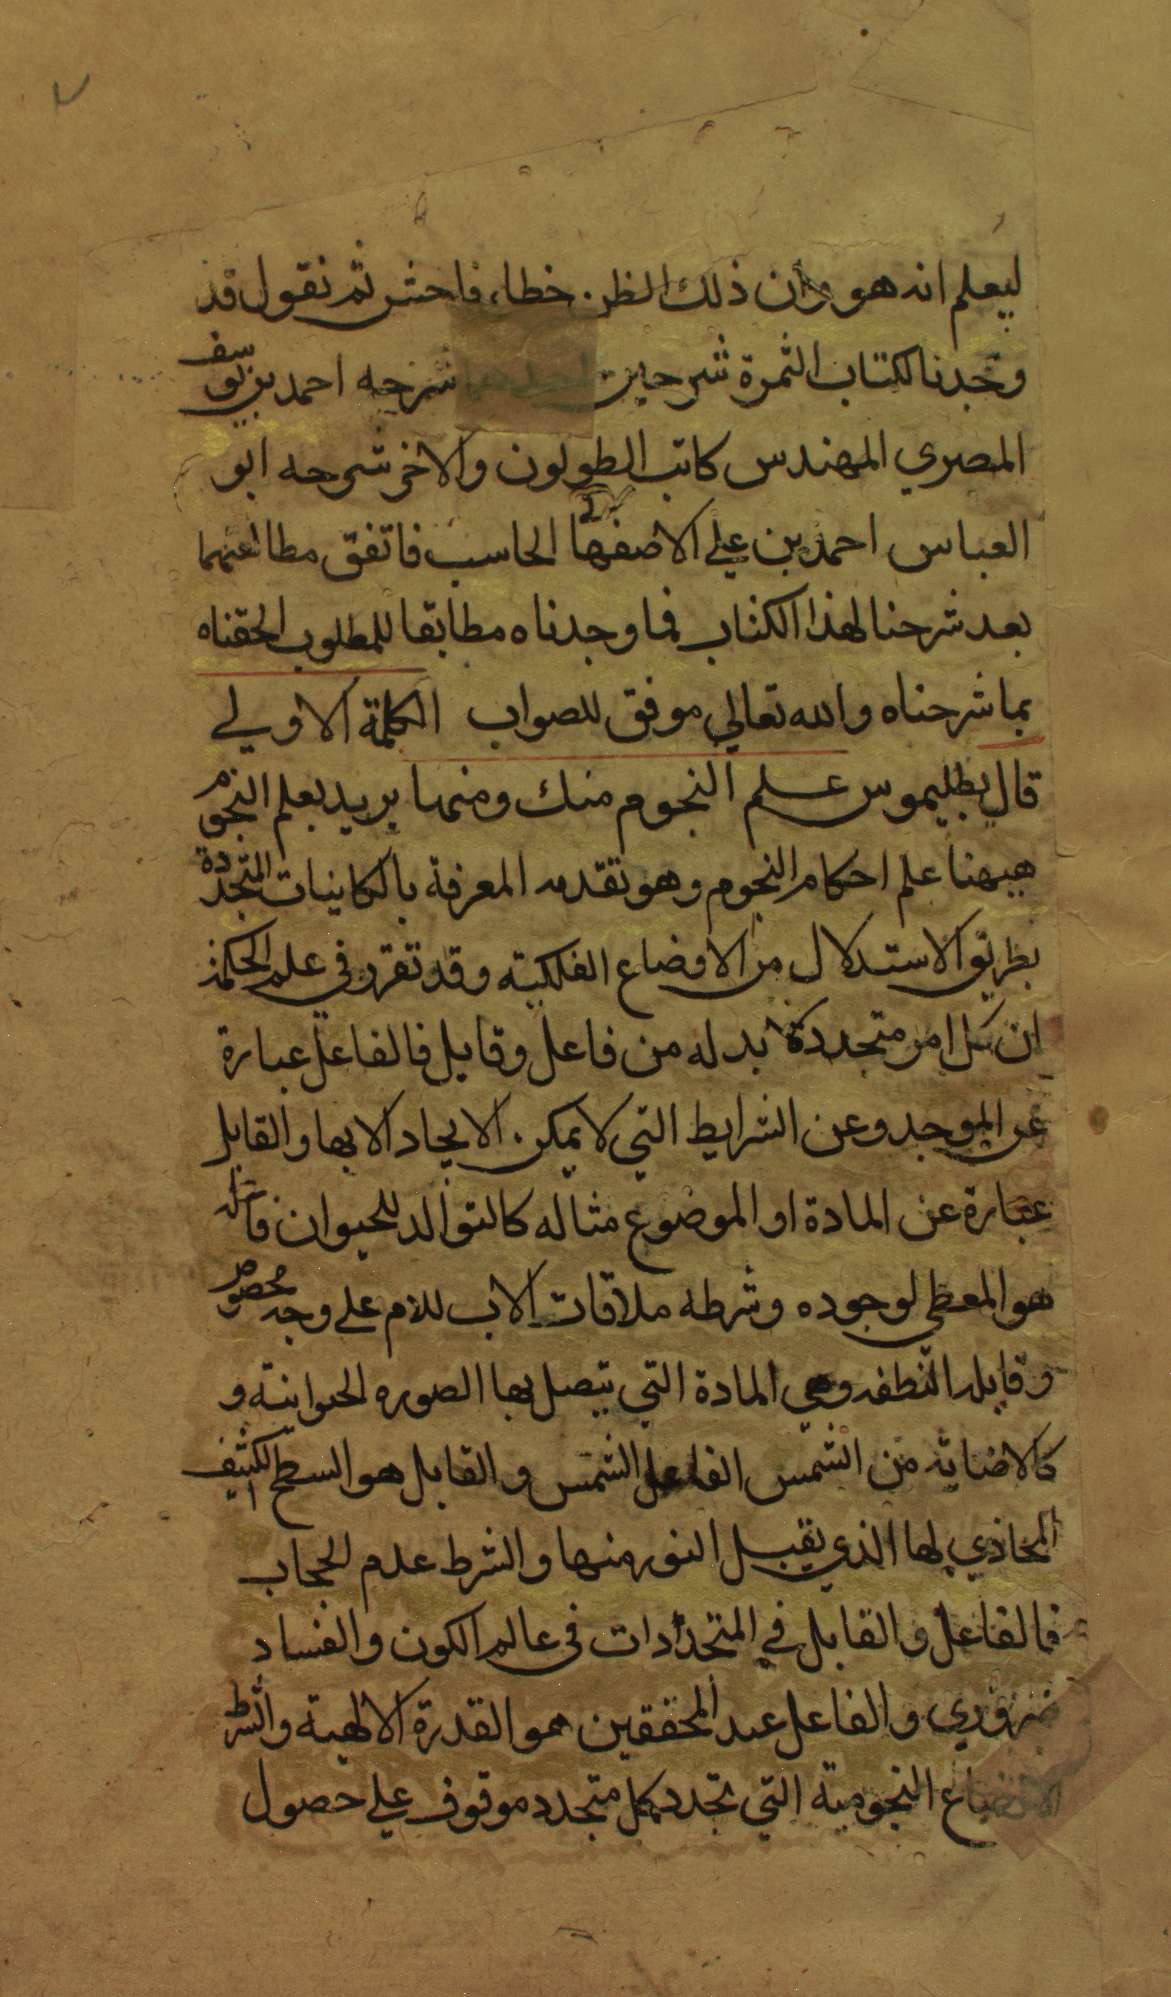 ليعلم انه هو وان ذلك الظن خطاء فاحش ثم نقول قد
وجدنا لكتاب الثمرة شرحين احدهما شرحه احمد بن يوسف
المصري المهندس كاتب الطولون والاخر شرحه ابو
العباس احمد بن علي الاصفهاني الحاسب فاتفق مطالعتهما
بعد شرحنا لهذا الكتاب فما وجدناه مطابقا للمطلوب الحقناه
بما شرحناه والله تعالي موفق للصواب الكلمة الاولي
قال بطليموس علم النجوم منك ومنها يريد بعلم النجوم
هيهنا علم احكام النجوم وهو تقدمه المعرفة بالكاينات المتجددة
بطريق الاستدلال من الاوضاع الفلكيته وقد تقرر في علم الحكمة
ان كل امر متجدد لا بد له من فاعل وقابل فالفاعل عبارة
عن الموجد وعن الشرايط التي لا يمكن الايجاد الا بها والقابل
عبارة عن المادة او الموضوع مثاله كالتوالد للحيوان فاعله
هو المعطي لوجوده وشرطه ملاقات الاب للام علي وجه مخصوص
وقابله النطفه وهي المادة التي يتصل بها الصوره الحيوانيته و
كالاضائه من الشمس الفاعل الشمس والقابل هو السطح الكثيف
المحاذي لها الذي يقبل النور منها والشرط عدم الحجاب
فالفاعل والقابل في المتجددات في عالم الكون والفساد
ضروري والفاعل عند المحققين هو القدرة الالهية والشرط
الاوضاع النجوميته التي تجدد كل متجدد موقوف علي حصول